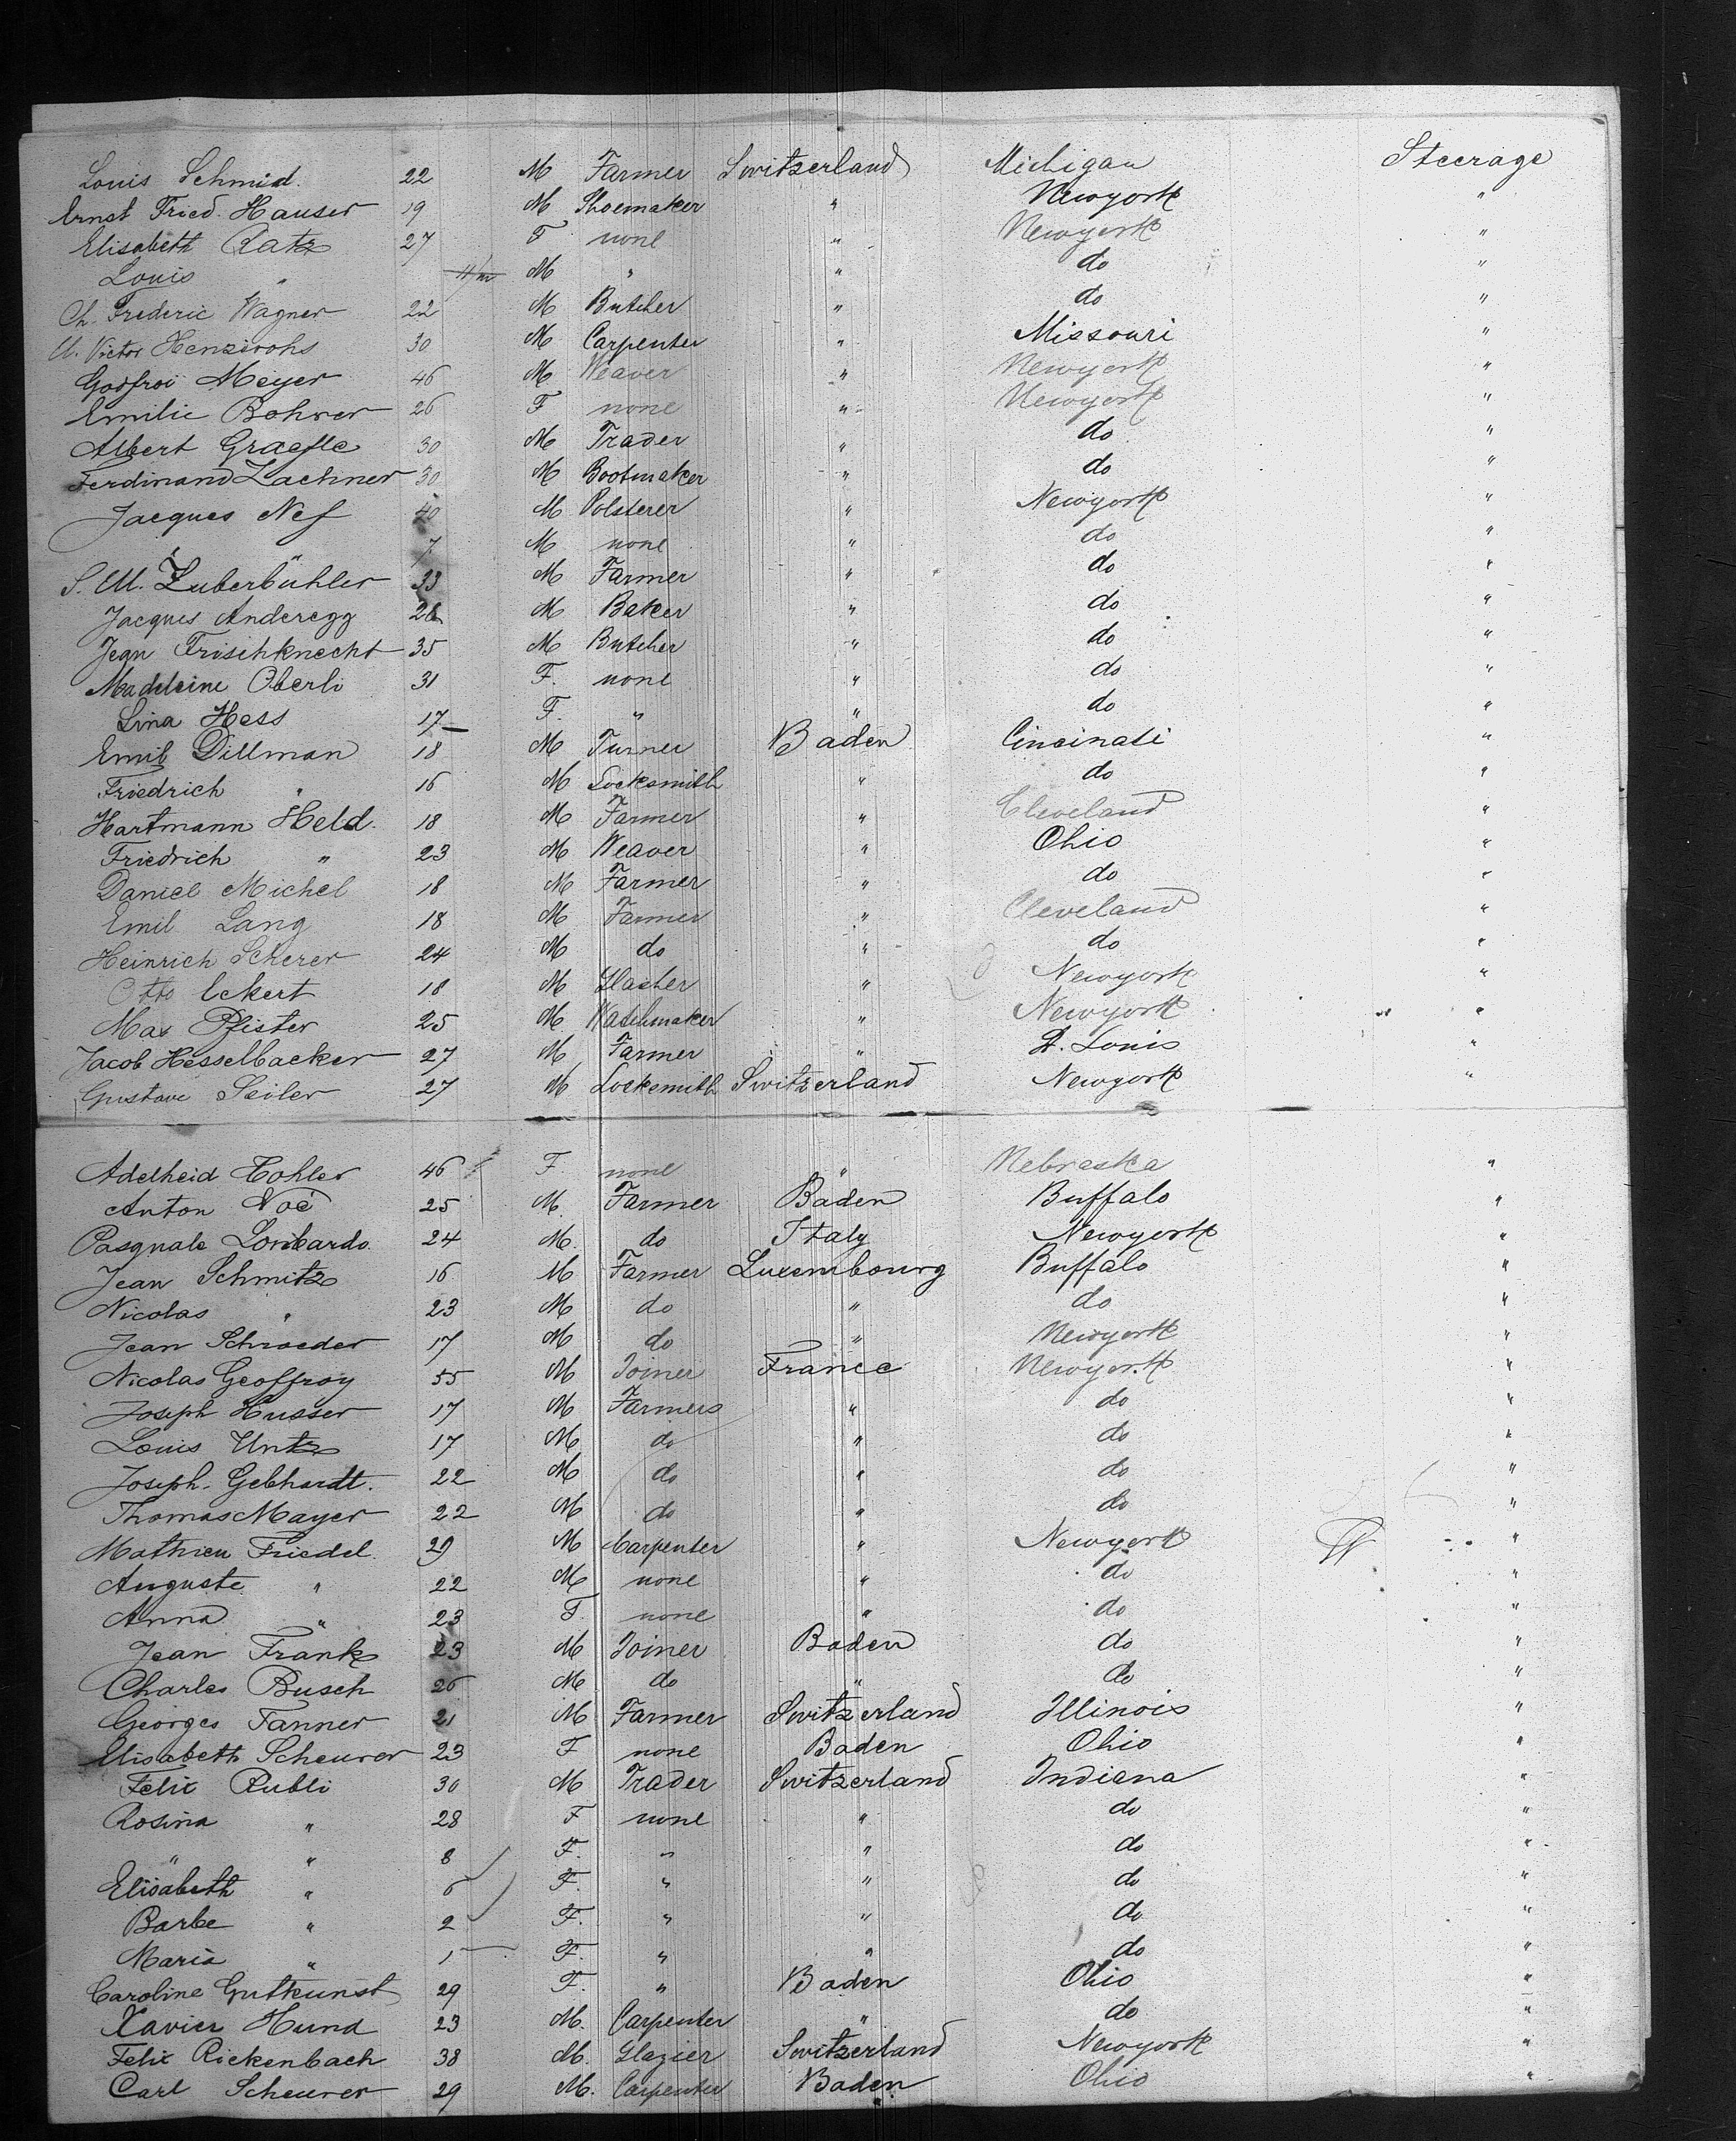 Louis Schmid. 22 M Farmer Switzerland Michigan Steerage
Ernst Fried. Hauser 19 M Shoemaker " Newyork "
Elisabeth Ratz 27 F none " Newyork "
Louis " 11/m M " " do "
Ch. Frederic Wagner 22 M Butcher " do "
U. Victor Henzirohs 30 M Carpenter " Missouri "
Godfroi Meyer 46 M Weaver " Newyork "
Emilie Bohrer 26 F none " Newyork "
Albert Graefle 30 M Trader " do "
Ferdinand Lachner 30 M Bootmaker " do "
Jacques Nef 40 M Polsterer " Newyork "
7 M none " do "
S. M. Zuberbühler 33 M Farmer " do "
Jacques Anderegg 26 M Baker " do "
Jean Frischknecht 35 M Butcher " do "
Madeleine Oberli 31 F. none " do "
Lina Hess 17 F. " " do "
Emil Dillman 18 M Turner Baden Cincinati "
Friedrich " 16 M Locksmith " do "
Hartmann Held. 18 M Farmer " Cleveland "
Friedrich " 23 M Weaver " Ohio "
Daniel Michel 18 M Farmer " do "
Emil Lang 18 M Farmer " Cleveland "
Heinrich Scherer 24 M do " do "
Otto Eckert 18 M " Newyork "
Max Pfister 25 M Watchmaker " Newyork "
Jacob Hesselbacker 27 M Farmer " St. Louis "
Gustave Seiler 27 M Locksmith Switzerland Newyork "
Adelheid Hohler 46 F. none " Nebraska "
Anton Noé 25 M. Farmer Baden Buffalo "
Pasquale Lombardo. 24 M. do Italy Newyork "
Jean Schmitz 16 M Farmer Luxembourg Buffalo "
Nicolas " 23 M do " do "
Jean Schroeder 17 M do " Newyork "
Nicolas Geoffroy 55 M Joiner France Newyork "
Joseph Husser 17 M Farmers " do "
Louis Untz 17 M do " do "
Joseph. Gebhardt. 22 M do " do "
Thomas Mayer 22 M do " do "
Mathieu Friedel. 29 M Carpenter " Newyork "
Auguste " 22 M none " do "
Anna " 23 F. none " do "
Jean Frank 23 M Joiner Baden do "
Charles Busch 26 M do " do "
Georges Tanner 21 M Farmer Switzerland Illinois "
Elisabeth Scheurer 23 F none Baden Ohio "
Felix Rubli 30 M Trader Switzerland Indiana "
Rosina " 28 F none " do "
" " 8 F. " " do "
Elisabeth " 6 F. " " do "
Barbe " 2 F. " " do "
Maria " 1 F. " " do "
Caroline Gutkunst 29 F. " Baden Ohio "
Xavier Hund 23 M. Carpenter " do "
Felix Rickenbach 38 M. Glazier Switzerland Newyork "
Carl Scheurer 29 M. Carpenter Baden Ohio "